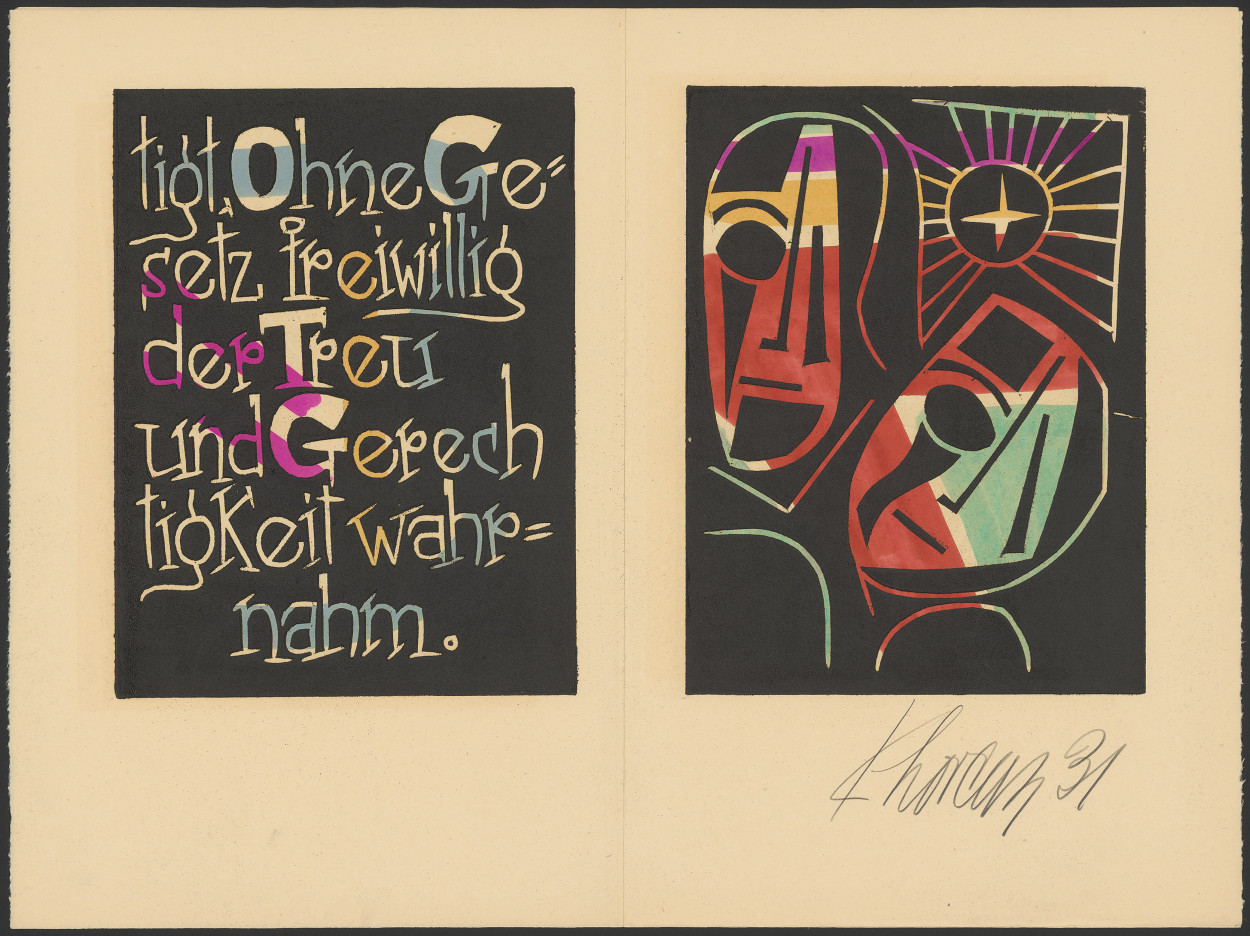 tigt. Ohne Ge=
setz freiwillig
der Treu
und Gerech
tigkeit wahr=
nahm.
31